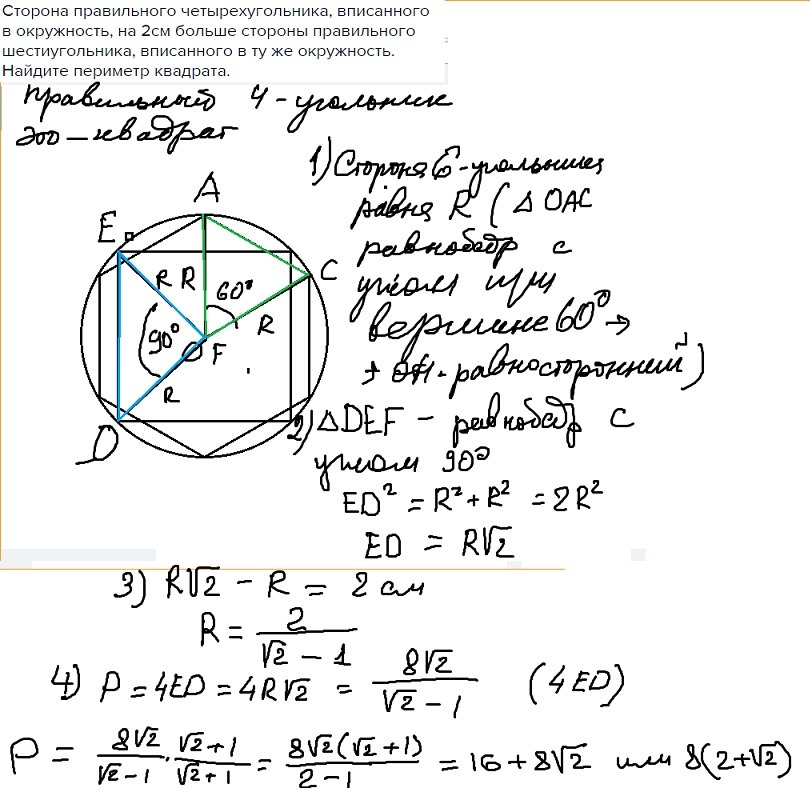 Сторона правильного четырехугольника, вписанного
в окружность, на 2см больше стороны правильного
шестиугольника, вписанного в ту же окружность.
Найдите периметр квадрата.
правильный 4-угольник
это – квадрат
1) Сторона 6-угольника
равна R ( △ OAC
равнобедр с
углом при
вершине 60° →
равносторонний)
A
E
C
R R 60°
R
90°
O F
R
D
2) △DEF – равнобедр с
углом 90°
ED² = R² + R² = 2R²
ED = R√2
3) R√2 – R = 2 см
R = 2 / (√2 – 1)
4) P = 4ED = 4R√2 = 8√2 / (√2 – 1) (4ED)
P = 8√2 / (√2 – 1) · (√2 + 1) / (√2 + 1) = 8√2(√2 + 1) / (2 – 1) = 16 + 8√2 или 8(2+√2)